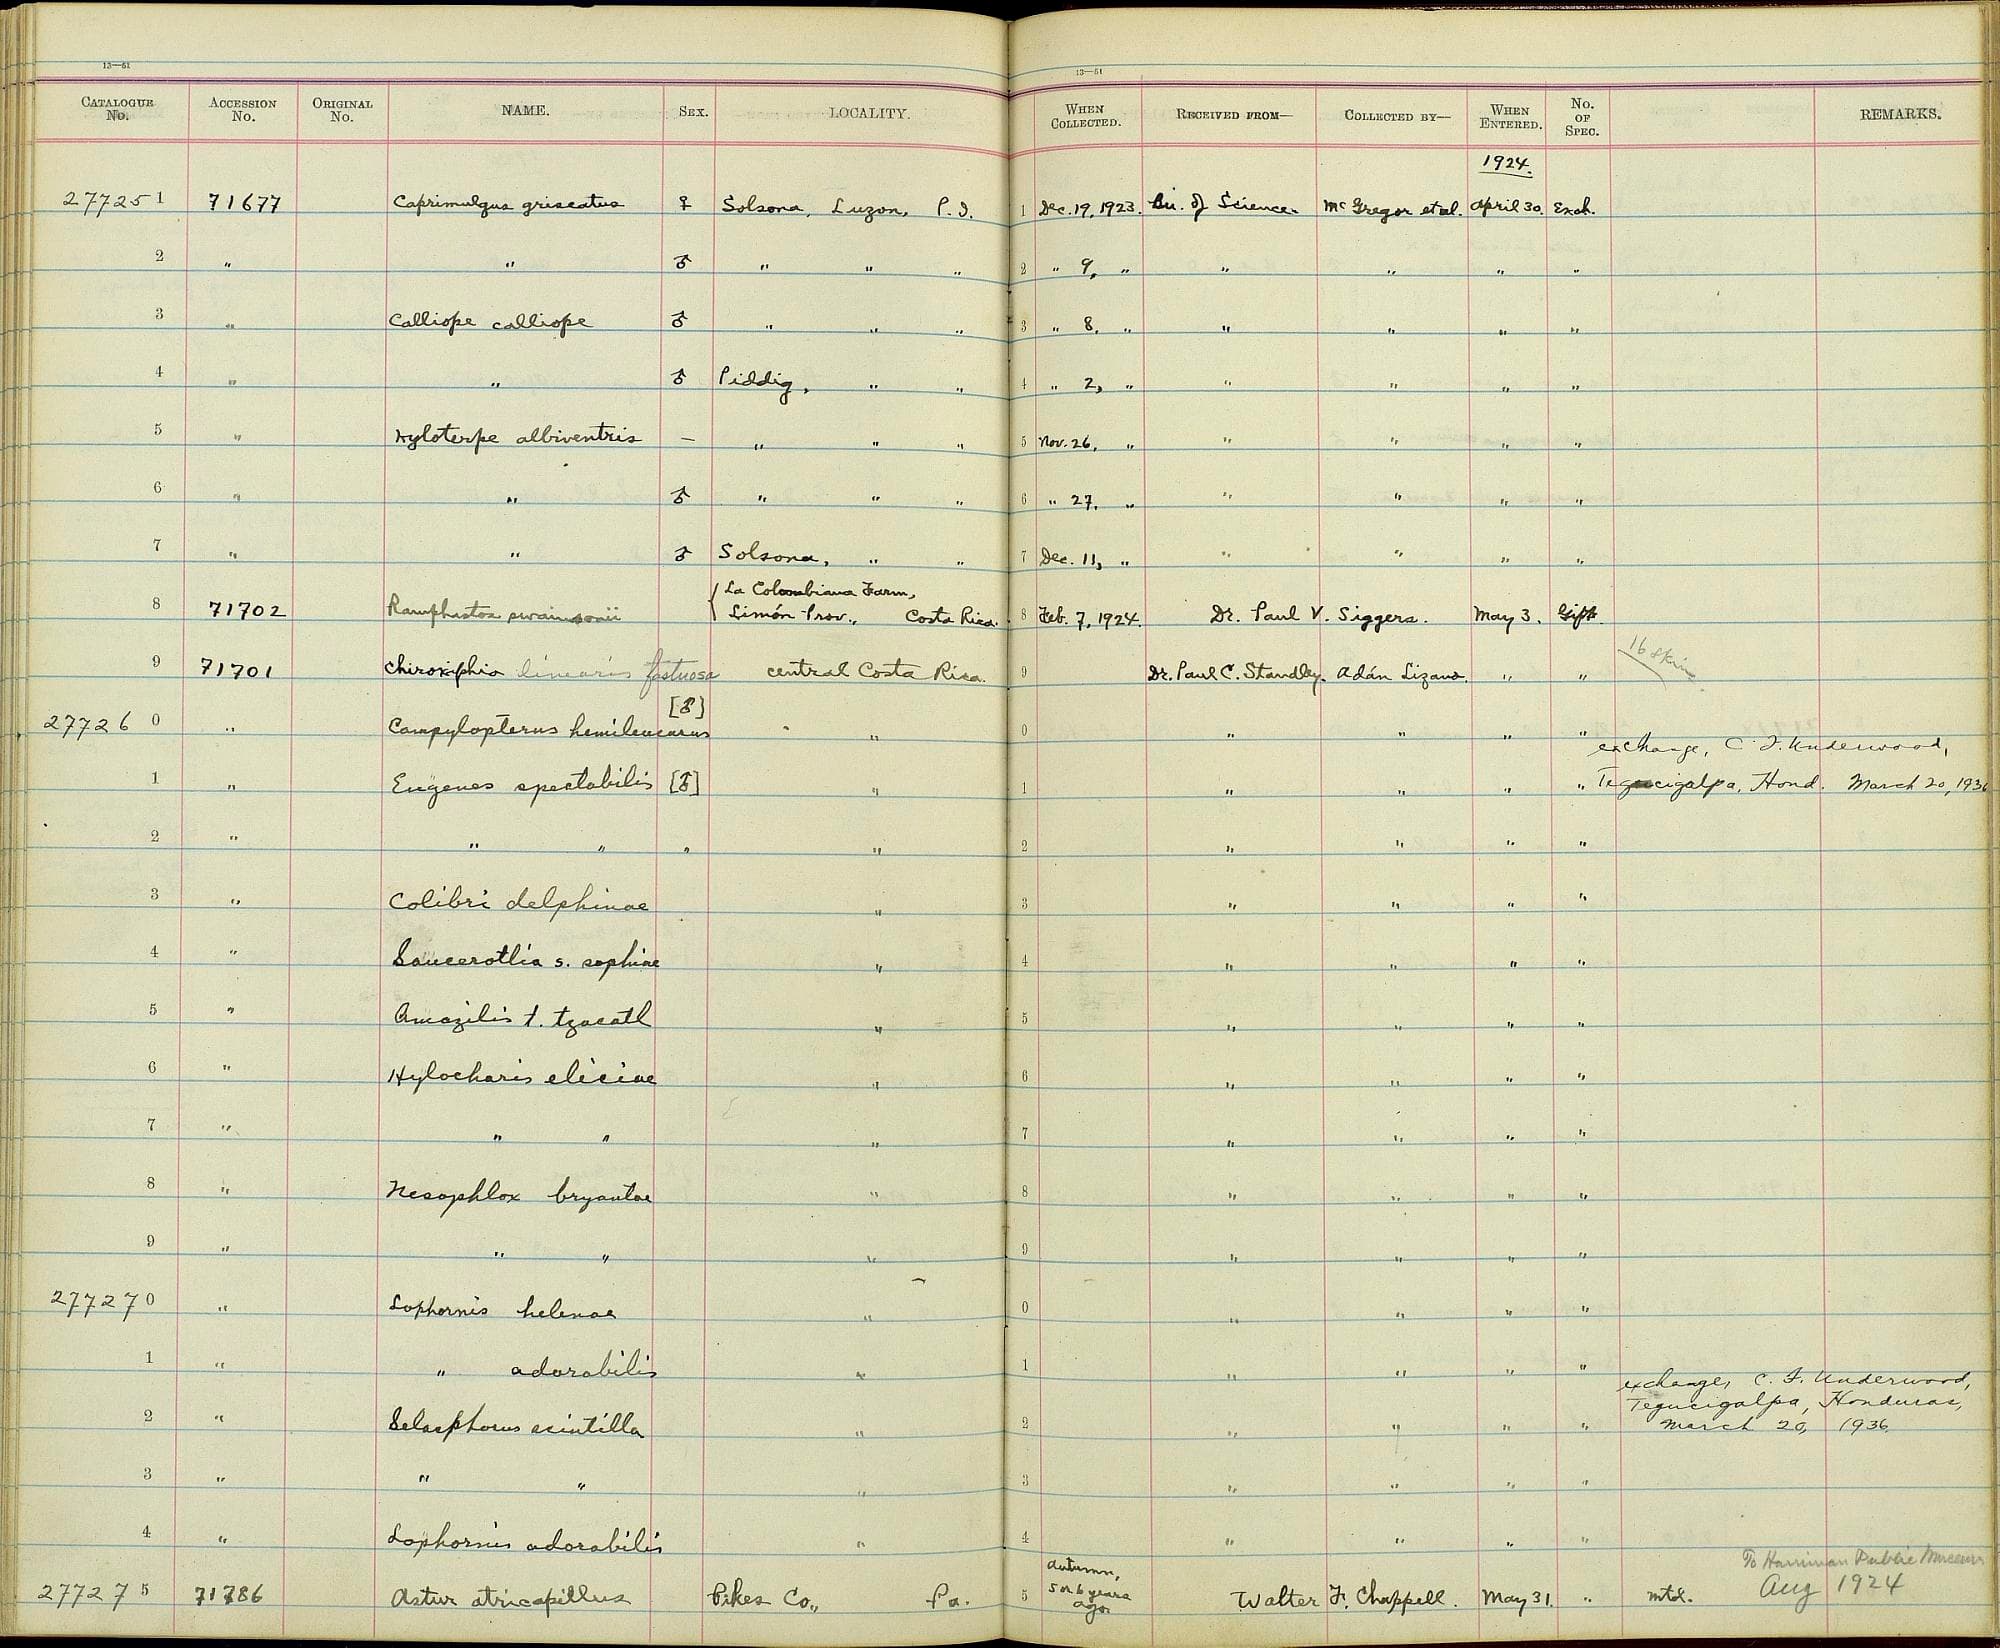 13—51
13—51
CATALOGUE No. ACCESSION No. ORIGINAL No. NAME. SEX. LOCALITY. WHEN COLLECTED. RECEIVED FROM— COLLECTED BY— WHEN ENTERED. No. OF SPEC. REMARKS.
1924.
277251 71677 Caprimulgus griseatus ♀ Solsona, Luzon, P. I. 1 Dec. 19, 1923. Bu. of Science. McGregor et al. April 30. Exch.
2 " " ♂ " " " 2 " 9, " " " " "
3 " Calliope calliope ♂ " " " 3 " 8, " " " " "
4 " " ♂ Piddig, " " 4 " 2, " " " " "
5 " Hyloterpe albiventris — " " " 5 Nov. 26, " " " " "
6 " " ♂ " " " 6 " 27, " " " " "
7 " " ♂ Solsona, " " 7 Dec. 11, " " " " "
8 71702 Ramphastos swainsonii { La Colombiana Farm, Limón Prov., Costa Rica. 8 Feb. 7, 1924. Dr. Paul V. Siggers. May 3. Gift.
9 71701 Chiroxiphia linearis fastuosa central Costa Rica. 9 Dr. Paul C. Standley. Adán Lizano. " " 16 skin
277260 " Campylopterus hemileucurus [♂] " 0 " " " " exchange, C. F. Underwood,
1 " Eugenes spectabilis [♂] " 1 " " " " Tegucigalpa, Hond. March 20, 1936
2 " " " " " 2 " " " "
3 " Colibri delphinae " 3 " " " "
4 " Saucerottia s. sophiae " 4 " " " "
5 " Amazilis t. tzacatl " 5 " " " "
6 " Hylocharis eliciae " 6 " " " "
7 " " " " 7 " " " "
8 " Nesophlox bryantae " 8 " " " "
9 " " " " 9 " " " "
277270 " Lophornis helenae " 0 " " " "
1 " " adorabilis " 1 " " " "
2 " Selasphorus scintilla " 2 " " " " exchange, C. F. Underwood, Tegucigalpa, Honduras, March 20, 1936.
3 " " " " 3 " " " "
4 " Lophornis adorabilis " 4 " " " "
277275 71786 Astur atricapillus Pikes Co., Pa. 5 autumn, 5 or 6 years ago. Walter F. Chappell. May 31. " mtd. To Harriman Public Museum Aug 1924